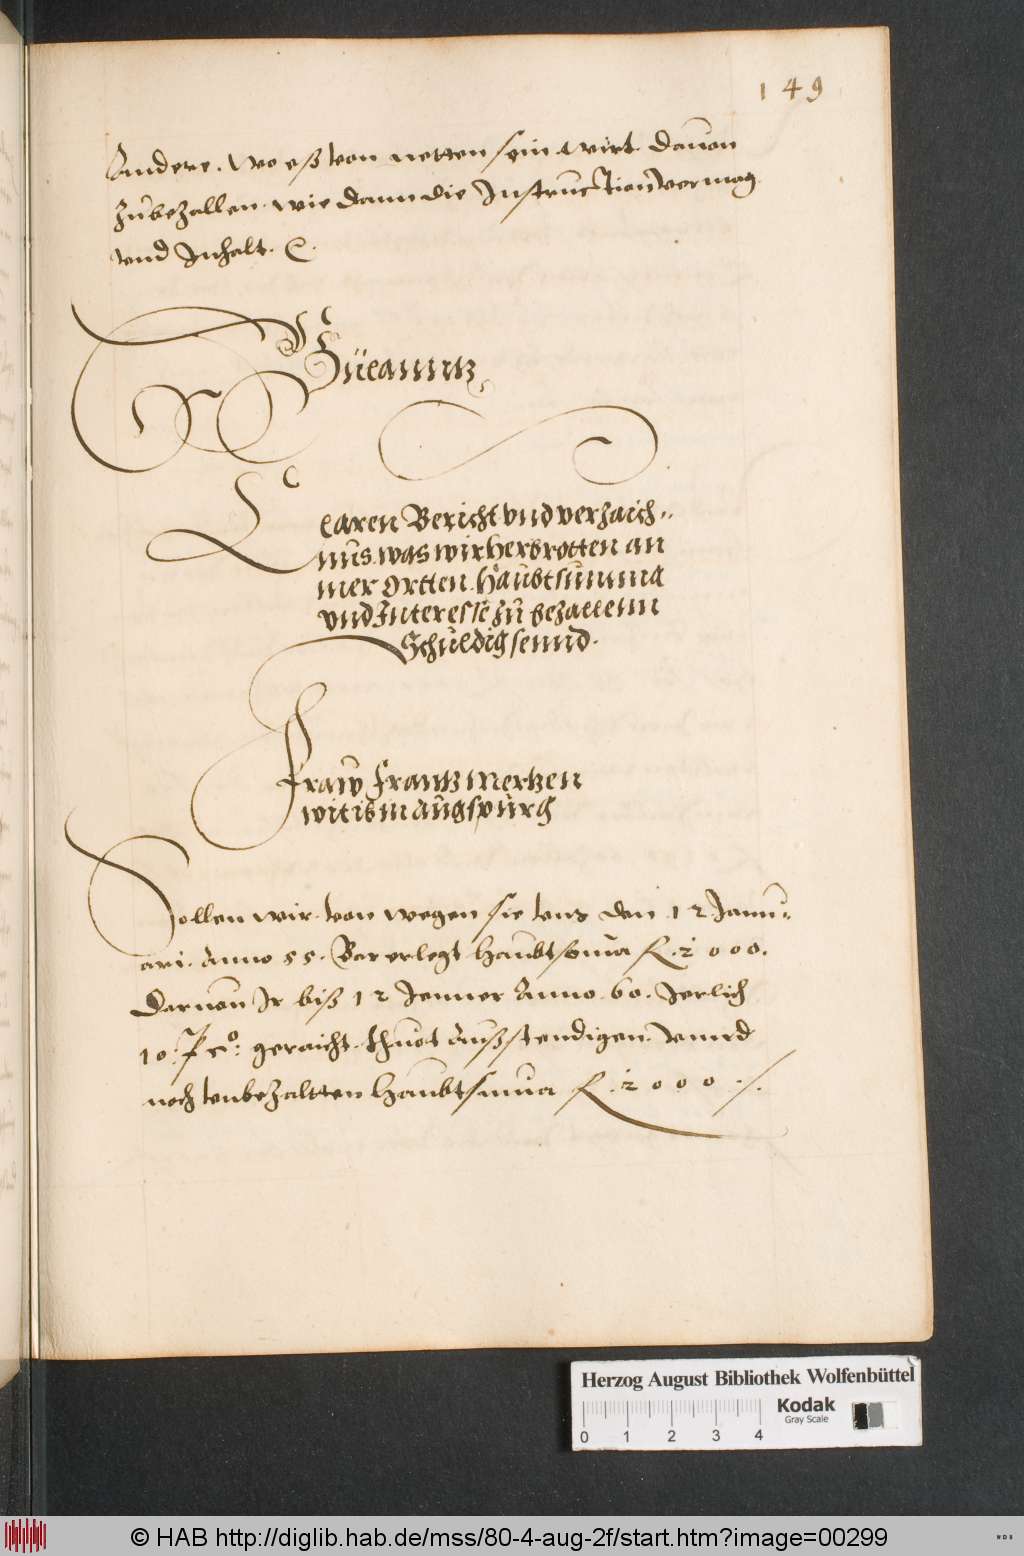 149
Andere. wo eß von netten sein wirt. dauon
zubezallen. wie dann die Instruction vermag.
vnd Inhalt. &.
Claren Bericht vnd verzaich-
nus. was wir herbrotten an
mer Ortten. Haubtsumma
vnd Interesse zu bezallenn
Schuldig sennd.
Fraw Frantz Mertzen
witib in Augspurg
Sollen wir. von wegen sie vns den 12 Janu-
ari. Anno 55. Bar erlegt haubtsoma fl. 2000.
Daruon Ir biß 12 Jenner Anno. 60. Jerlich
10. P co: geraicht. thuot Außstendigen. vnnd
noch vnbezaltten Haubtsuma fl. 2000 ./.
Herzog August Bibliothek Wolfenbüttel
Kodak
Gray Scale
0 1 2 3 4
© HAB http://diglib.hab.de/mss/80-4-aug-2f/start.htm?image=00299